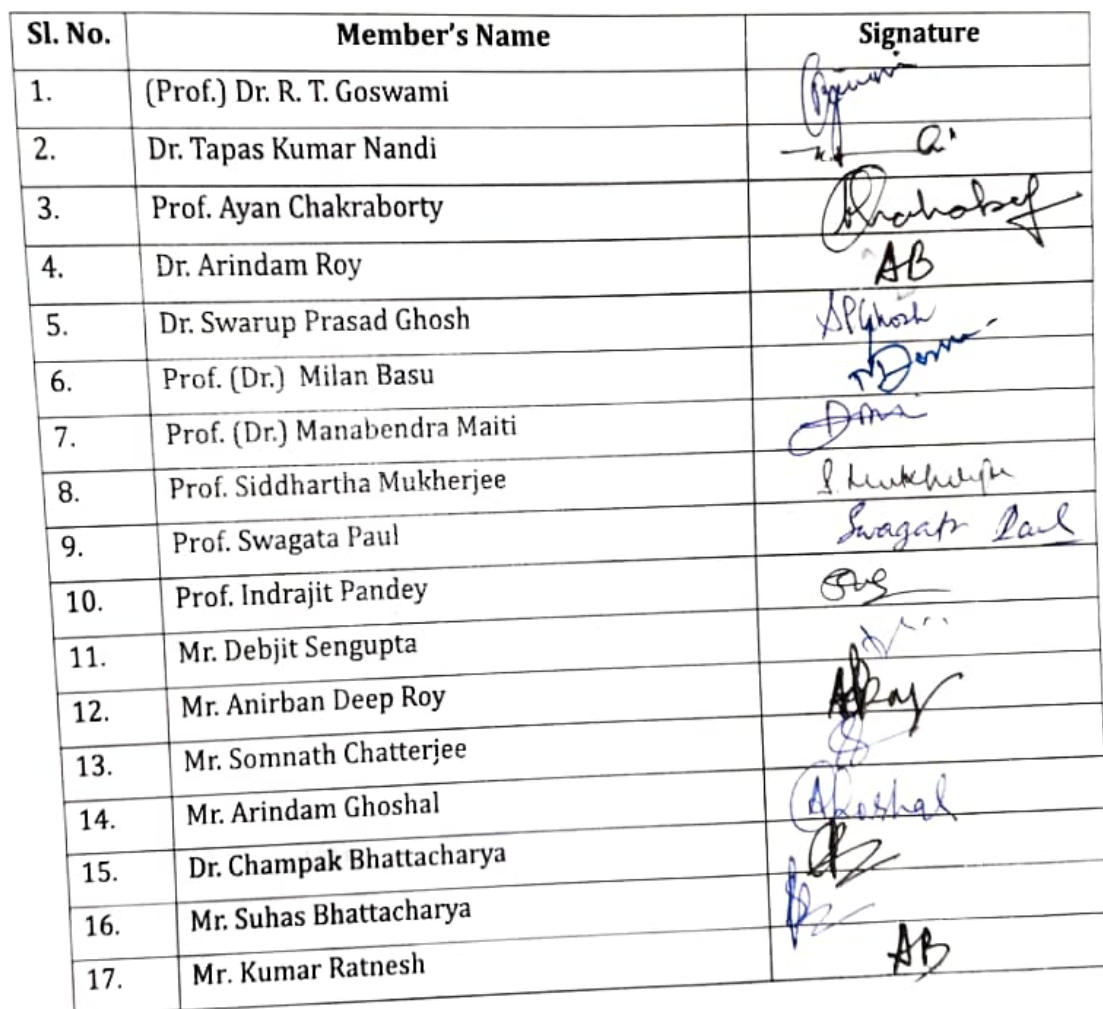 Sl. No. Member's Name Signature
1. (Prof.) Dr. R. T. Goswami
2. Dr. Tapas Kumar Nandi
3. Prof. Ayan Chakraborty
4. Dr. Arindam Roy AB
5. Dr. Swarup Prasad Ghosh SPGhosh
6. Prof. (Dr.) Milan Basu
7. Prof. (Dr.) Manabendra Maiti
8. Prof. Siddhartha Mukherjee S. Mukherjee
9. Prof. Swagata Paul Swagata Paul
10. Prof. Indrajit Pandey
11. Mr. Debjit Sengupta
12. Mr. Anirban Deep Roy ADRoy
13. Mr. Somnath Chatterjee
14. Mr. Arindam Ghoshal AGhoshal
15. Dr. Champak Bhattacharya
16. Mr. Suhas Bhattacharya
17. Mr. Kumar Ratnesh AB